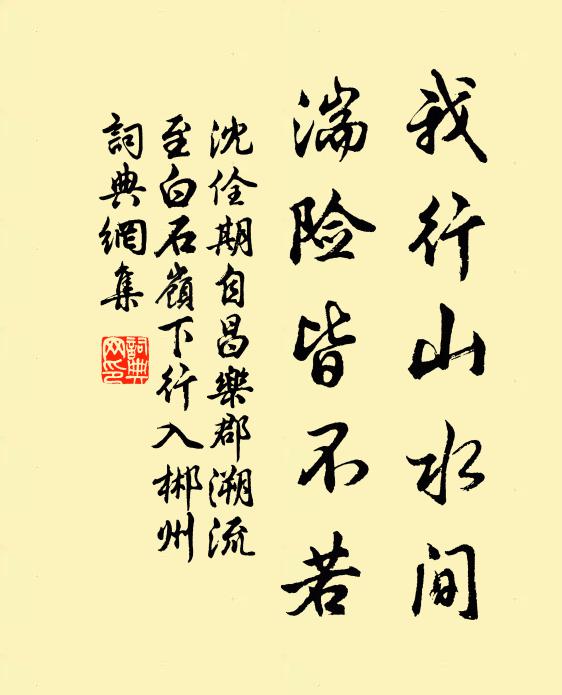 我行山水间
湍险皆不若
沈佺期自昌樂郡溯流
至白石嶺下行入郴州
詞典網集
詞典网印